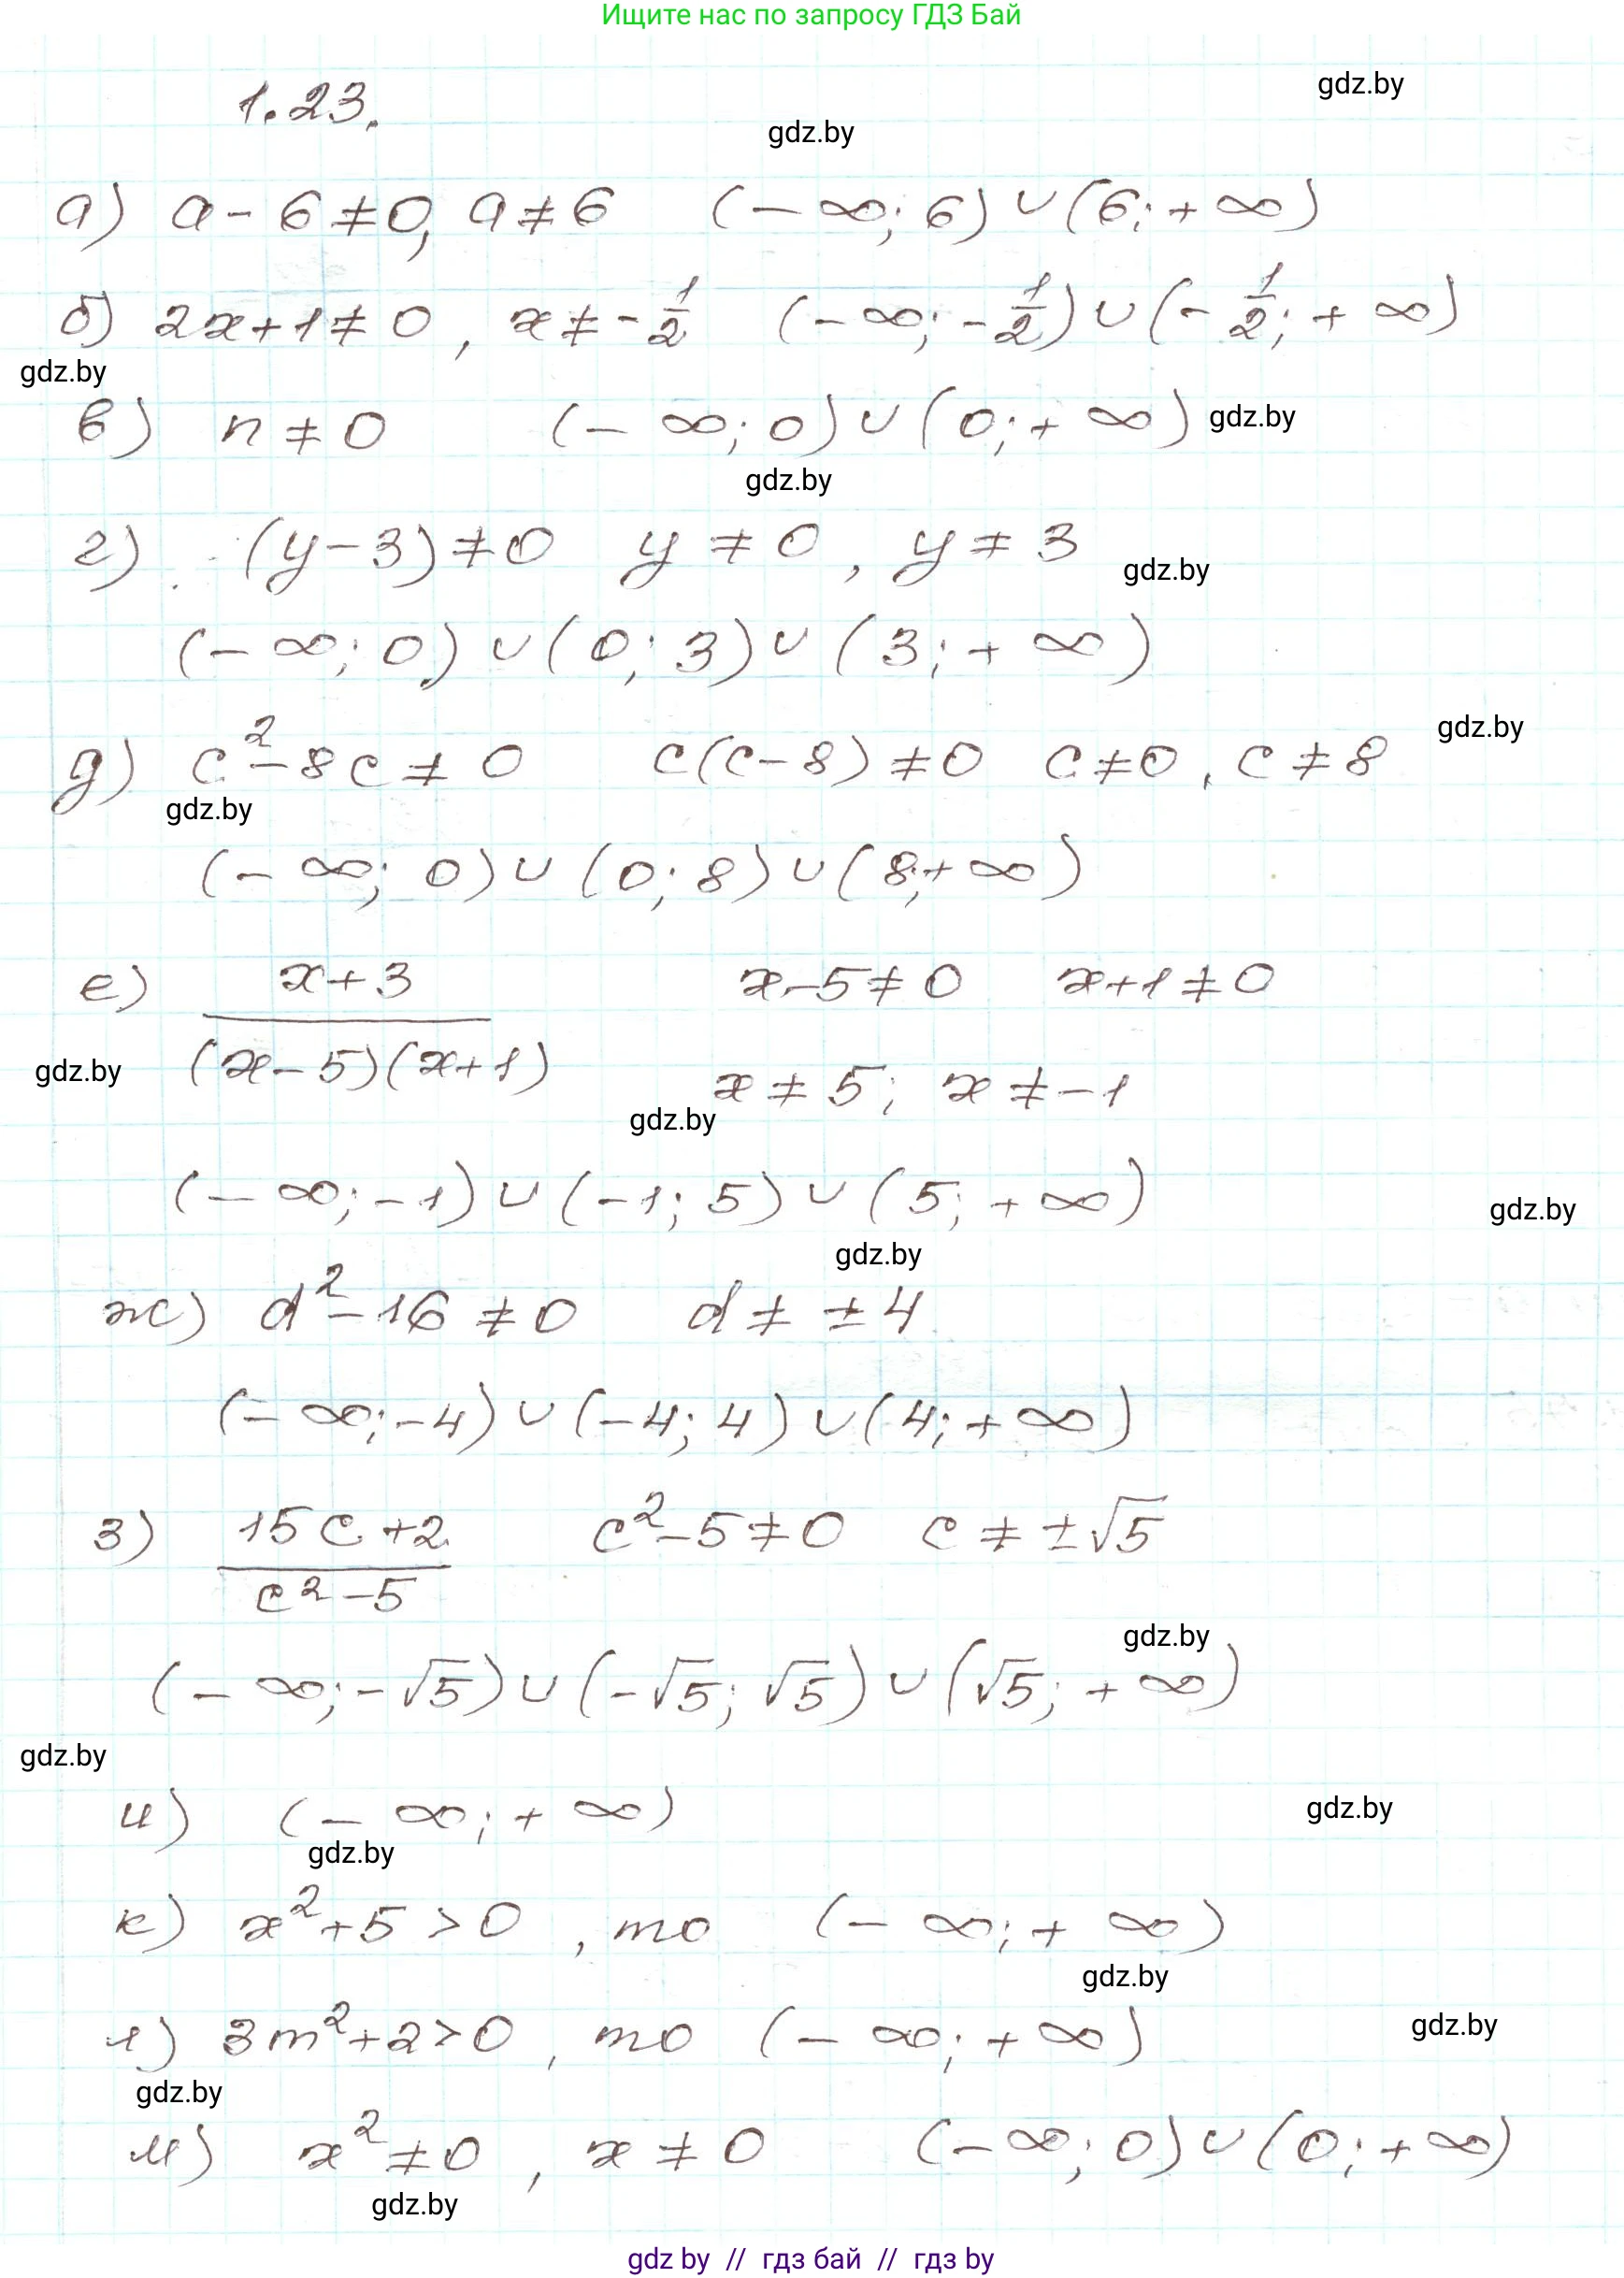 Ищите нас по запросу ГДЗ Бай
1.23.
gdz.by
gdz.by
а) a - 6 ≠ 0, a ≠ 6 (- ∞; 6) ∪ (6; + ∞)
б) 2x + 1 ≠ 0, x ≠ - 1/2 (- ∞; - 1/2) ∪ (- 1/2; + ∞)
gdz.by
в) n ≠ 0 (- ∞; 0) ∪ (0; + ∞)
gdz.by
gdz.by
г) (y - 3) ≠ 0 y ≠ 0, y ≠ 3
gdz.by
(- ∞; 0) ∪ (0; 3) ∪ (3; + ∞)
gdz.by
д) c² - 8c ≠ 0 c(c - 8) ≠ 0 c ≠ 0, c ≠ 8
gdz.by
(- ∞; 0) ∪ (0; 8) ∪ (8; + ∞)
е) (x + 3)/((x - 5)(x + 1)) x - 5 ≠ 0 x + 1 ≠ 0
gdz.by
x ≠ 5; x ≠ - 1
gdz.by
(- ∞; - 1) ∪ (- 1; 5) ∪ (5; + ∞)
gdz.by
gdz.by
ж) d² - 16 ≠ 0 d ≠ ± 4
(- ∞; - 4) ∪ (- 4; 4) ∪ (4; + ∞)
з) (15c + 2)/(c² - 5) c² - 5 ≠ 0 c ≠ ± √5
gdz.by
(- ∞; - √5) ∪ (- √5; √5) ∪ (√5; + ∞)
gdz.by
и) (- ∞; + ∞)
gdz.by
gdz.by
к) x² + 5 > 0, то (- ∞; + ∞)
gdz.by
л) 3m² + 2 > 0, то (- ∞; + ∞)
gdz.by
gdz.by
м) x² ≠ 0, x ≠ 0 (- ∞; 0) ∪ (0; + ∞)
gdz.by
gdz by // гдз бай // гдз by